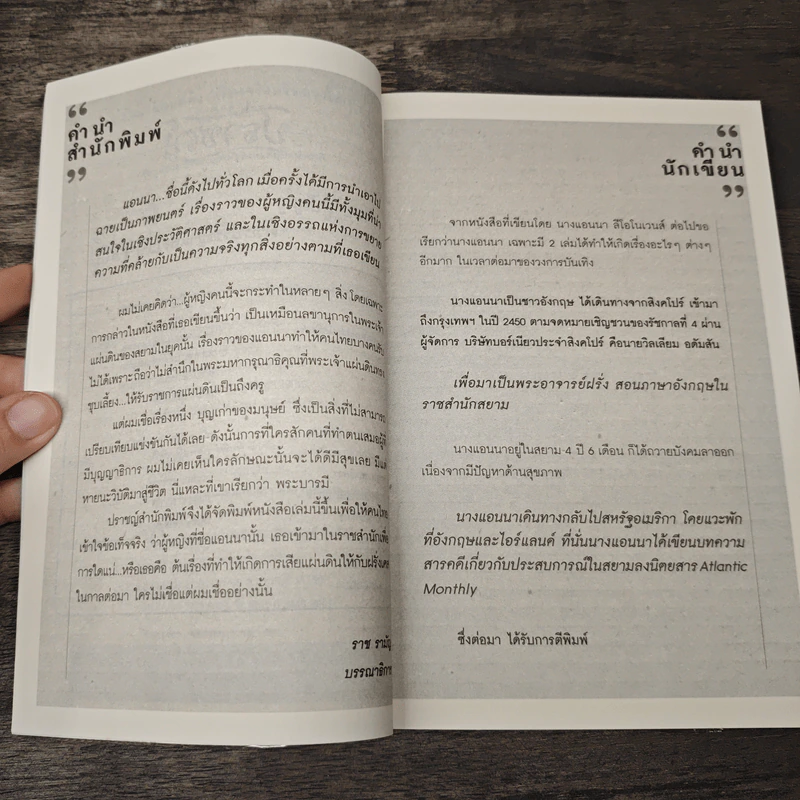 “
คำ นำ
สำนักพิมพ์
”
แอนนา...ชื่อนี้ดังไปทั่วโลก เมื่อครั้งได้มีการนำเอาไป
ฉายเป็นภาพยนตร์ เรื่องราวของผู้หญิงคนนี้มีทั้งมุมที่น่า
สนใจในเชิงประวัติศาสตร์ และในเชิงอรรถแห่งการขยาย
ความที่คล้ายกับเป็นความจริงทุกสิ่งอย่างตามที่เธอเขียน
ผมไม่เคยคิดว่า...ผู้หญิงคนนี้จะกระทำในหลายๆ สิ่ง โดยเฉพาะ
การกล่าวในหนังสือที่เธอเขียนขึ้นว่า เป็นเหมือนเลขานุการในพระเจ้า
แผ่นดินของสยามในยุคนั้น เรื่องราวของแอนนาทำให้คนไทยบางคนรับ
ไม่ได้เพราะถือว่าไม่สำนึกในพระมหากรุณาธิคุณที่พระเจ้าแผ่นดินทรง
ชุบเลี้ยง...ให้รับราชการแผ่นดินเป็นถึงครู
แต่ผมเชื่อเรื่องหนึ่ง บุญเก่าของมนุษย์ ซึ่งเป็นสิ่งที่ไม่สามารถ
เปรียบเทียบแข่งขันกันได้เลย ดังนั้นการที่ใครสักคนที่ทำตนเสมอผู้ที่
มีบุญญาธิการ ผมไม่เคยเห็นใครลักษณะนั้นจะได้ดีมีสุขเลย มีแต่
หายนะวิบัติมาสู่ชีวิต นี่แหละที่เขาเรียกว่า พระบารมี
ปราชญ์สำนักพิมพ์จึงได้จัดพิมพ์หนังสือเล่มนี้ขึ้นเพื่อให้คนไทย
เข้าใจข้อเท็จจริง ว่าผู้หญิงที่ชื่อแอนนานั้น เธอเข้ามาในราชสำนักเพื่อ
การใดแน่...หรือเธอคือ ต้นเรื่องที่ทำให้เกิดการเสียแผ่นดินให้กับฝรั่งเศส
ในกาลต่อมา ใครไม่เชื่อแต่ผมเชื่ออย่างนั้น
ราช รามัญ
บรรณาธิการ
“
คำ นำ
นักเขียน
”
จากหนังสือที่เขียนโดย นางแอนนา ลีโอโนเวนส์ ต่อไปขอ
เรียกว่านางแอนนา เฉพาะมี 2 เล่มได้ทำให้เกิดเรื่องอะไรๆ ต่างๆ
อีกมาก ในเวลาต่อมาของวงการบันเทิง
นางแอนนาเป็นชาวอังกฤษ ได้เดินทางจากสิงคโปร์ เข้ามา
ถึงกรุงเทพฯ ในปี 2450 ตามจดหมายเชิญชวนของรัชกาลที่ 4 ผ่าน
ผู้จัดการ บริษัทบอร์เนียวประจำสิงคโปร์ คือนายวิลเลียม อดัมสัน
เพื่อมาเป็นพระอาจารย์ฝรั่ง สอนภาษาอังกฤษใน
ราชสำนักสยาม
นางแอนนาอยู่ในสยาม 4 ปี 6 เดือน ก็ได้ถวายบังคมลาออก
เนื่องจากมีปัญหาด้านสุขภาพ
นางแอนนาเดินทางกลับไปสหรัฐอเมริกา โดยแวะพัก
ที่อังกฤษและไอร์แลนด์ ที่นั่นนางแอนนาได้เขียนบทความ
สารคดีเกี่ยวกับประสบการณ์ในสยามลงนิตยสาร Atlantic
Monthly
ซึ่งต่อมา ได้รับการตีพิมพ์